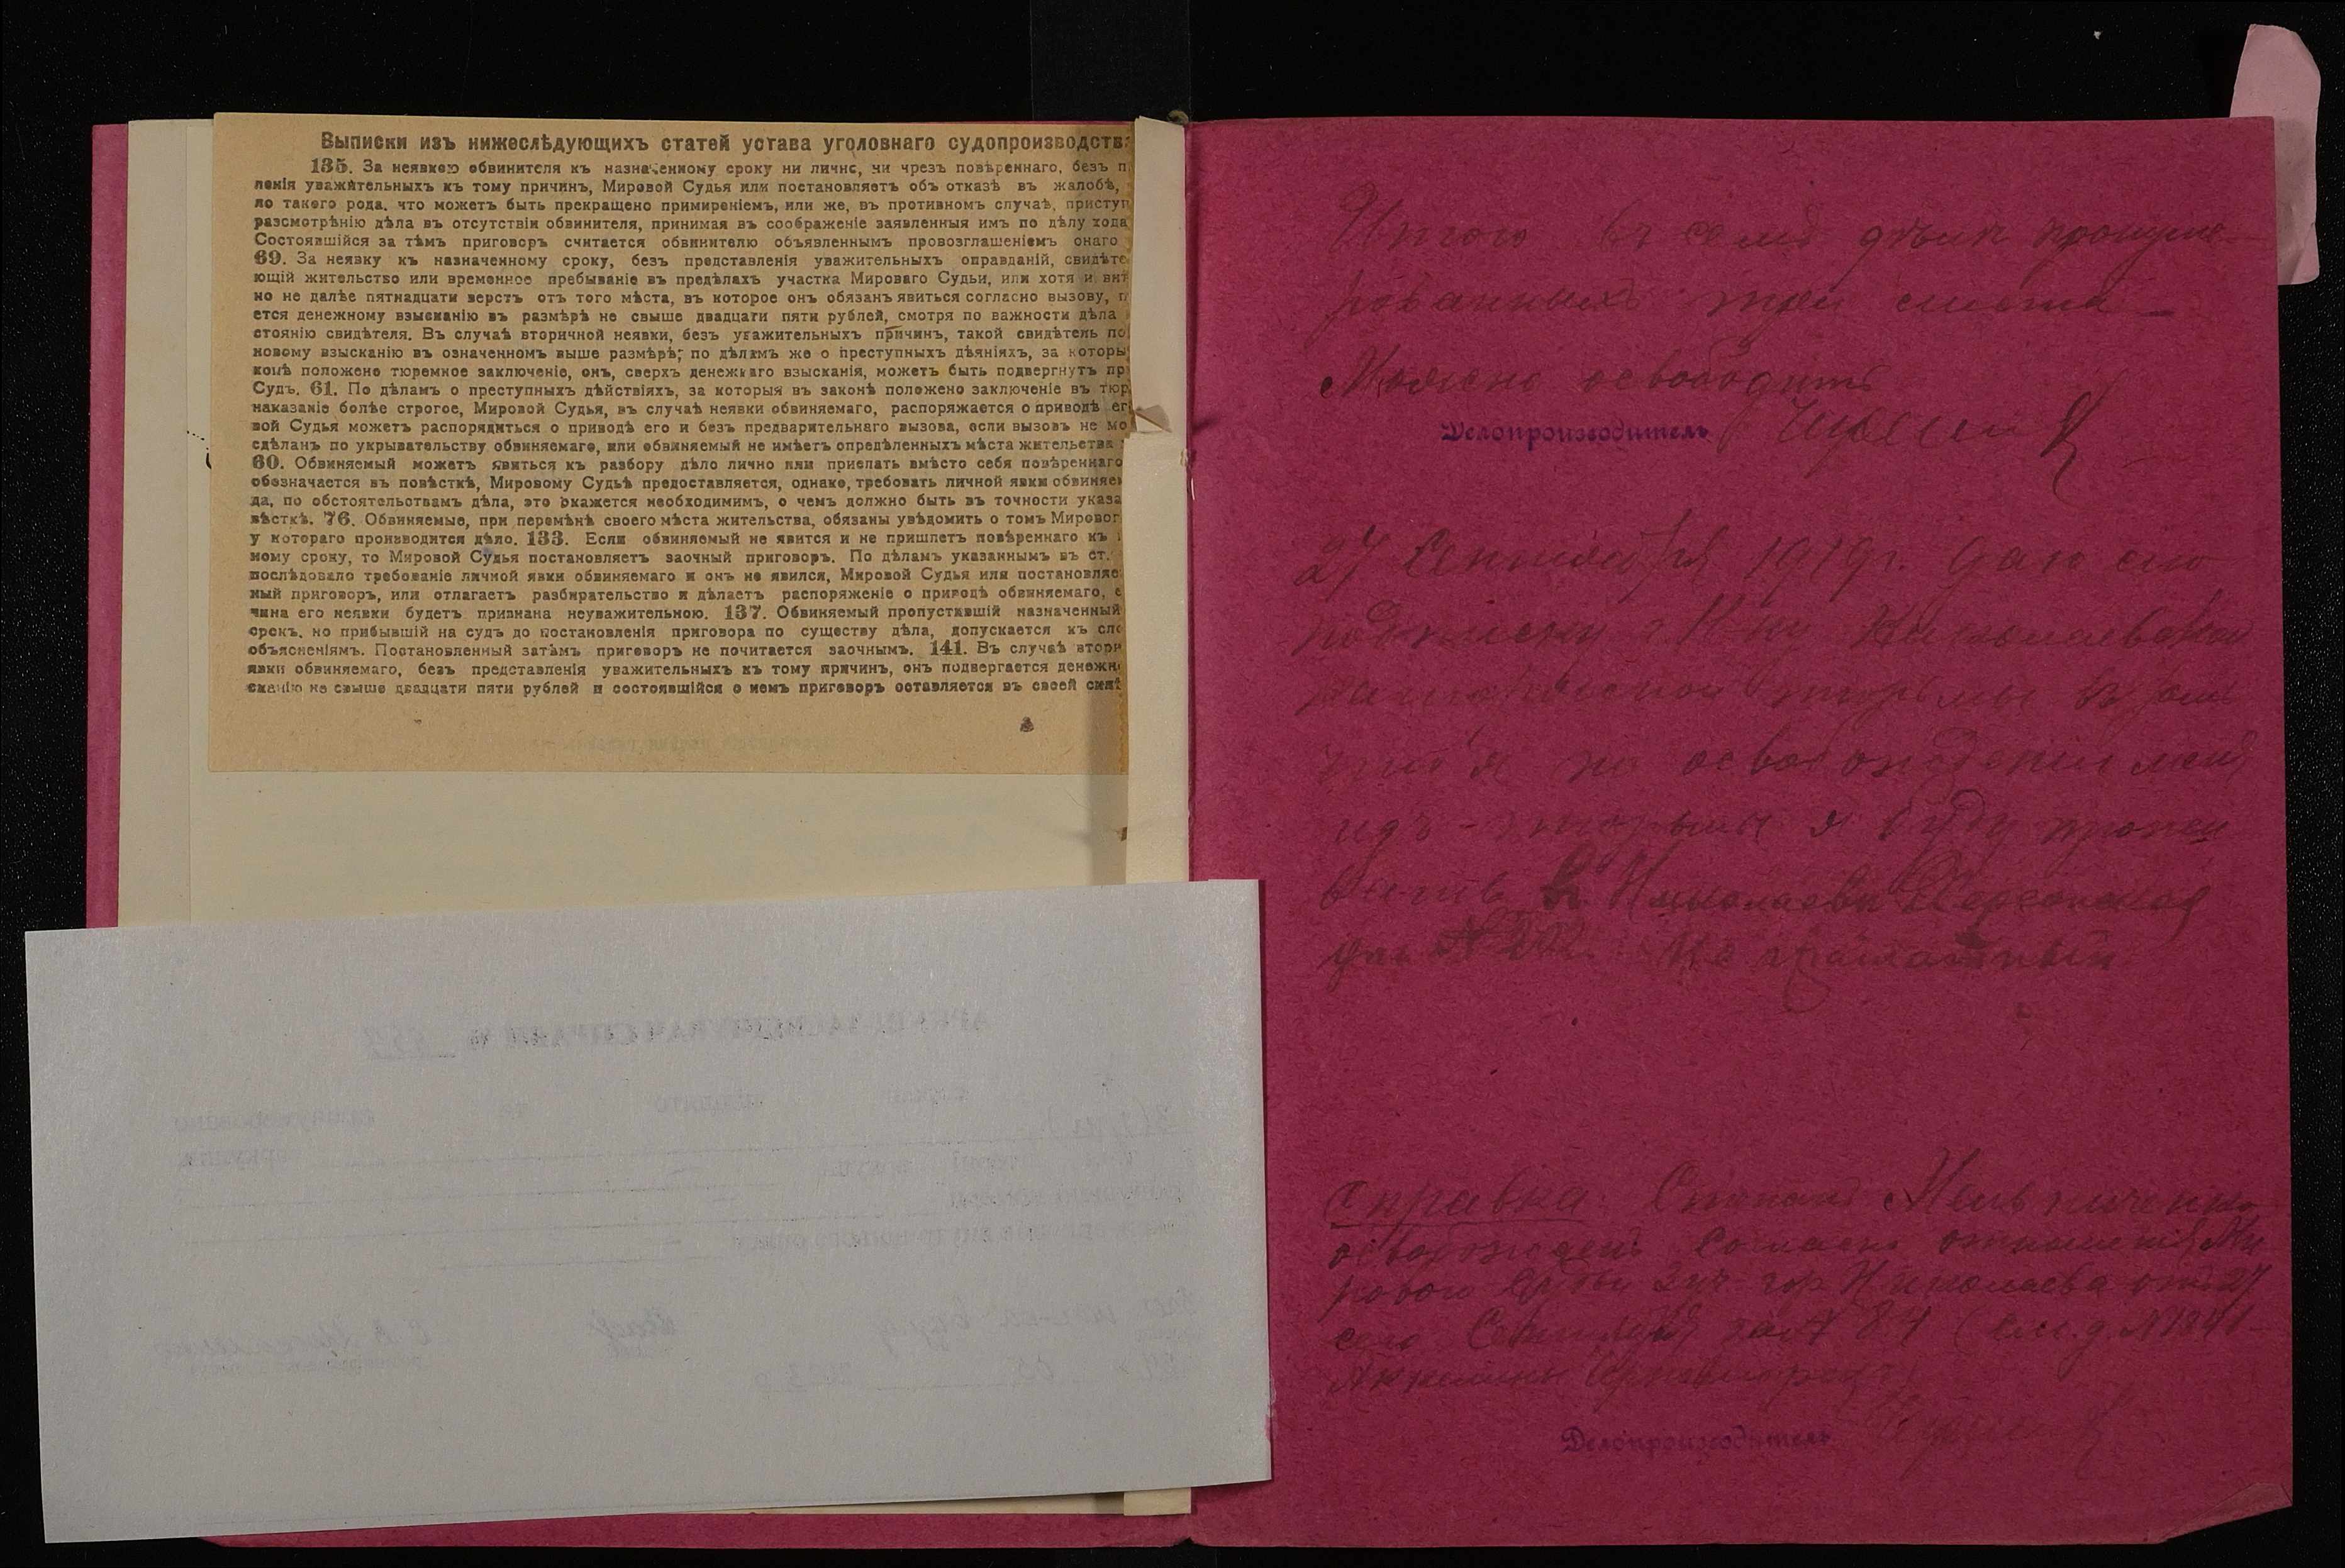 Выписки изъ нижеслѣдующихъ статей устава уголовнаго судопроизводств
135. За неявкою обвинителя къ назначенному сроку ни лично, ни чрезъ повѣреннаго, безъ п
ленія уважительныхъ къ тому причинъ, Мировой Судья или постановляетъ объ отказѣ въ жалобѣ,
ло такого рода, что можетъ быть прекращено примиреніемъ, или же, въ противномъ случаѣ, приступ
разсмотрѣнію дѣла въ отсутствіи обвинителя, принимая въ соображеніе заявленныя имъ по дѣлу хода
Состоявшійся за тѣмъ приговоръ считается обвинителю объявленнымъ провозглашеніемъ онаго
69. За неявку къ назначенному сроку, безъ представленія уважительныхъ оправданій, свидѣте
ющій жительство или временное пребываніе въ предѣлахъ участка Мироваго Судьи, или хотя и вн
но не далѣе пятнадцати верстъ отъ того мѣста, въ которое онъ обязанъ явиться согласно вызову, п
ется денежному взысканію въ размѣрѣ не свыше двадцати пяти рублей, смотря по важности дѣла
стоянію свидѣтеля. Въ случаѣ вторичной неявки, безъ уважительныхъ причинъ, такой свидѣтель по
новому взысканію въ означенномъ выше размѣрѣ; по дѣламъ же о преступныхъ дѣяніяхъ, за которы
конѣ положено тюремное заключеніе, онъ, сверхъ денежнаго взысканія, можетъ быть подвергнутъ пр
Судъ. 61. По дѣламъ о преступныхъ дѣйствіяхъ, за которыя въ законѣ положено заключеніе въ тюр
наказаніе болѣе строгое, Мировой Судья, въ случаѣ неявки обвиняемаго, распоряжается о приводѣ ег
вой Судья можетъ распорядиться о приводѣ его и безъ предварительнаго вызова, если вызовъ не мо
сдѣланъ по укрывательству обвиняемаго, или обвиняемый не имѣетъ опредѣленныхъ мѣста жительства
60. Обвиняемый можетъ явиться къ разбору дѣло лично или прислать вмѣсто себя повѣреннаго
обозначается въ повѣсткѣ, Мировому Судьѣ предоставляется, однако, требовать личной явки обвиняе
да, по обстоятельствамъ дѣла, это окажется необходимимъ, о чемъ должно быть въ точности указа
вѣсткѣ. 76. Обвиняемые, при перемѣнѣ своего мѣста жительства, обязаны увѣдомить о томъ Мировог
у котораго производится дѣло. 133. Если обвиняемый не явится и не пришлетъ повѣреннаго къ
ному сроку, то Мировой Судья постановляетъ заочный приговоръ. По дѣламъ указаннымъ въ ст.
послѣдовало требованіе личной явки обвиняемаго и онъ не явился, Мировой Судья или постановляе
ный приговоръ, или отлагаетъ разбирательство и дѣлаетъ распоряженіе о приводѣ обвиняемаго, е
чина его неявки будетъ признана неуважительною. 137. Обвиняемый пропустившій назначенный
срокъ, но прибывшій на судъ до постановленія приговора по существу дѣла, допускается къ сло
объясненіямъ. Постановленный затѣмъ приговоръ не почитается заочнымъ. 141. Въ случаѣ втори
явки обвиняемаго, безъ представленія уважительныхъ къ тому причинъ, онъ подвергается денежн
сканію не свыше двадцати пяти рублей и состоявшійся о немъ приговоръ оставляется въ своей силѣ
Итого въ семъ дѣлѣ пронуме-
рованныхъ три листа
Можно освободить
Делопроизводитель
27 Сентября 1919 г. даю сію
подписку Николаевской
тюрьмы въ томъ
что я по освобожденіи меня
изъ тюрьмы я буду прожи
вать въ Николаевѣ Херсонская
ул. № 202. Не грамотный
Справка. Степанъ Мельниченко
освобожденъ согласно отношенія Ми
рового Судьи 3 уч. гор. Николаева отъ 27
сего Сентября за № 84 (см. д. № 1841-
Делопроизводитель